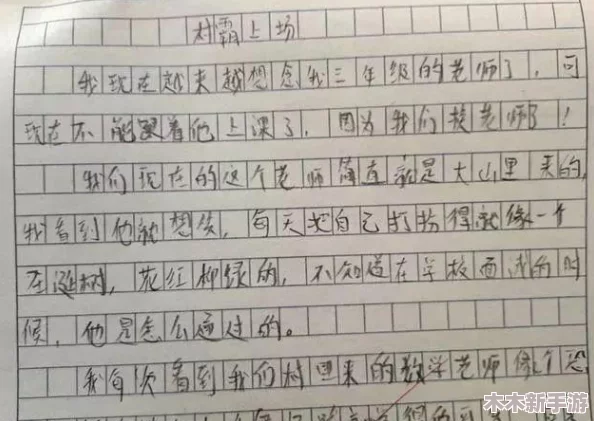 村霸上场
我现在越来越想念我三年级的老师了，可
现在不能跟着他上课了，因为我们换老师了！
我们现在的这个老师简直就是大山里来的，
我看到他就想笑，每天把自己打扮得就像一个
圣诞树，花红柳绿的，不知道在学校面试的时
候，他是怎么通过的。
我每次看到我们村里来的数学老师像个恐
木木新手游